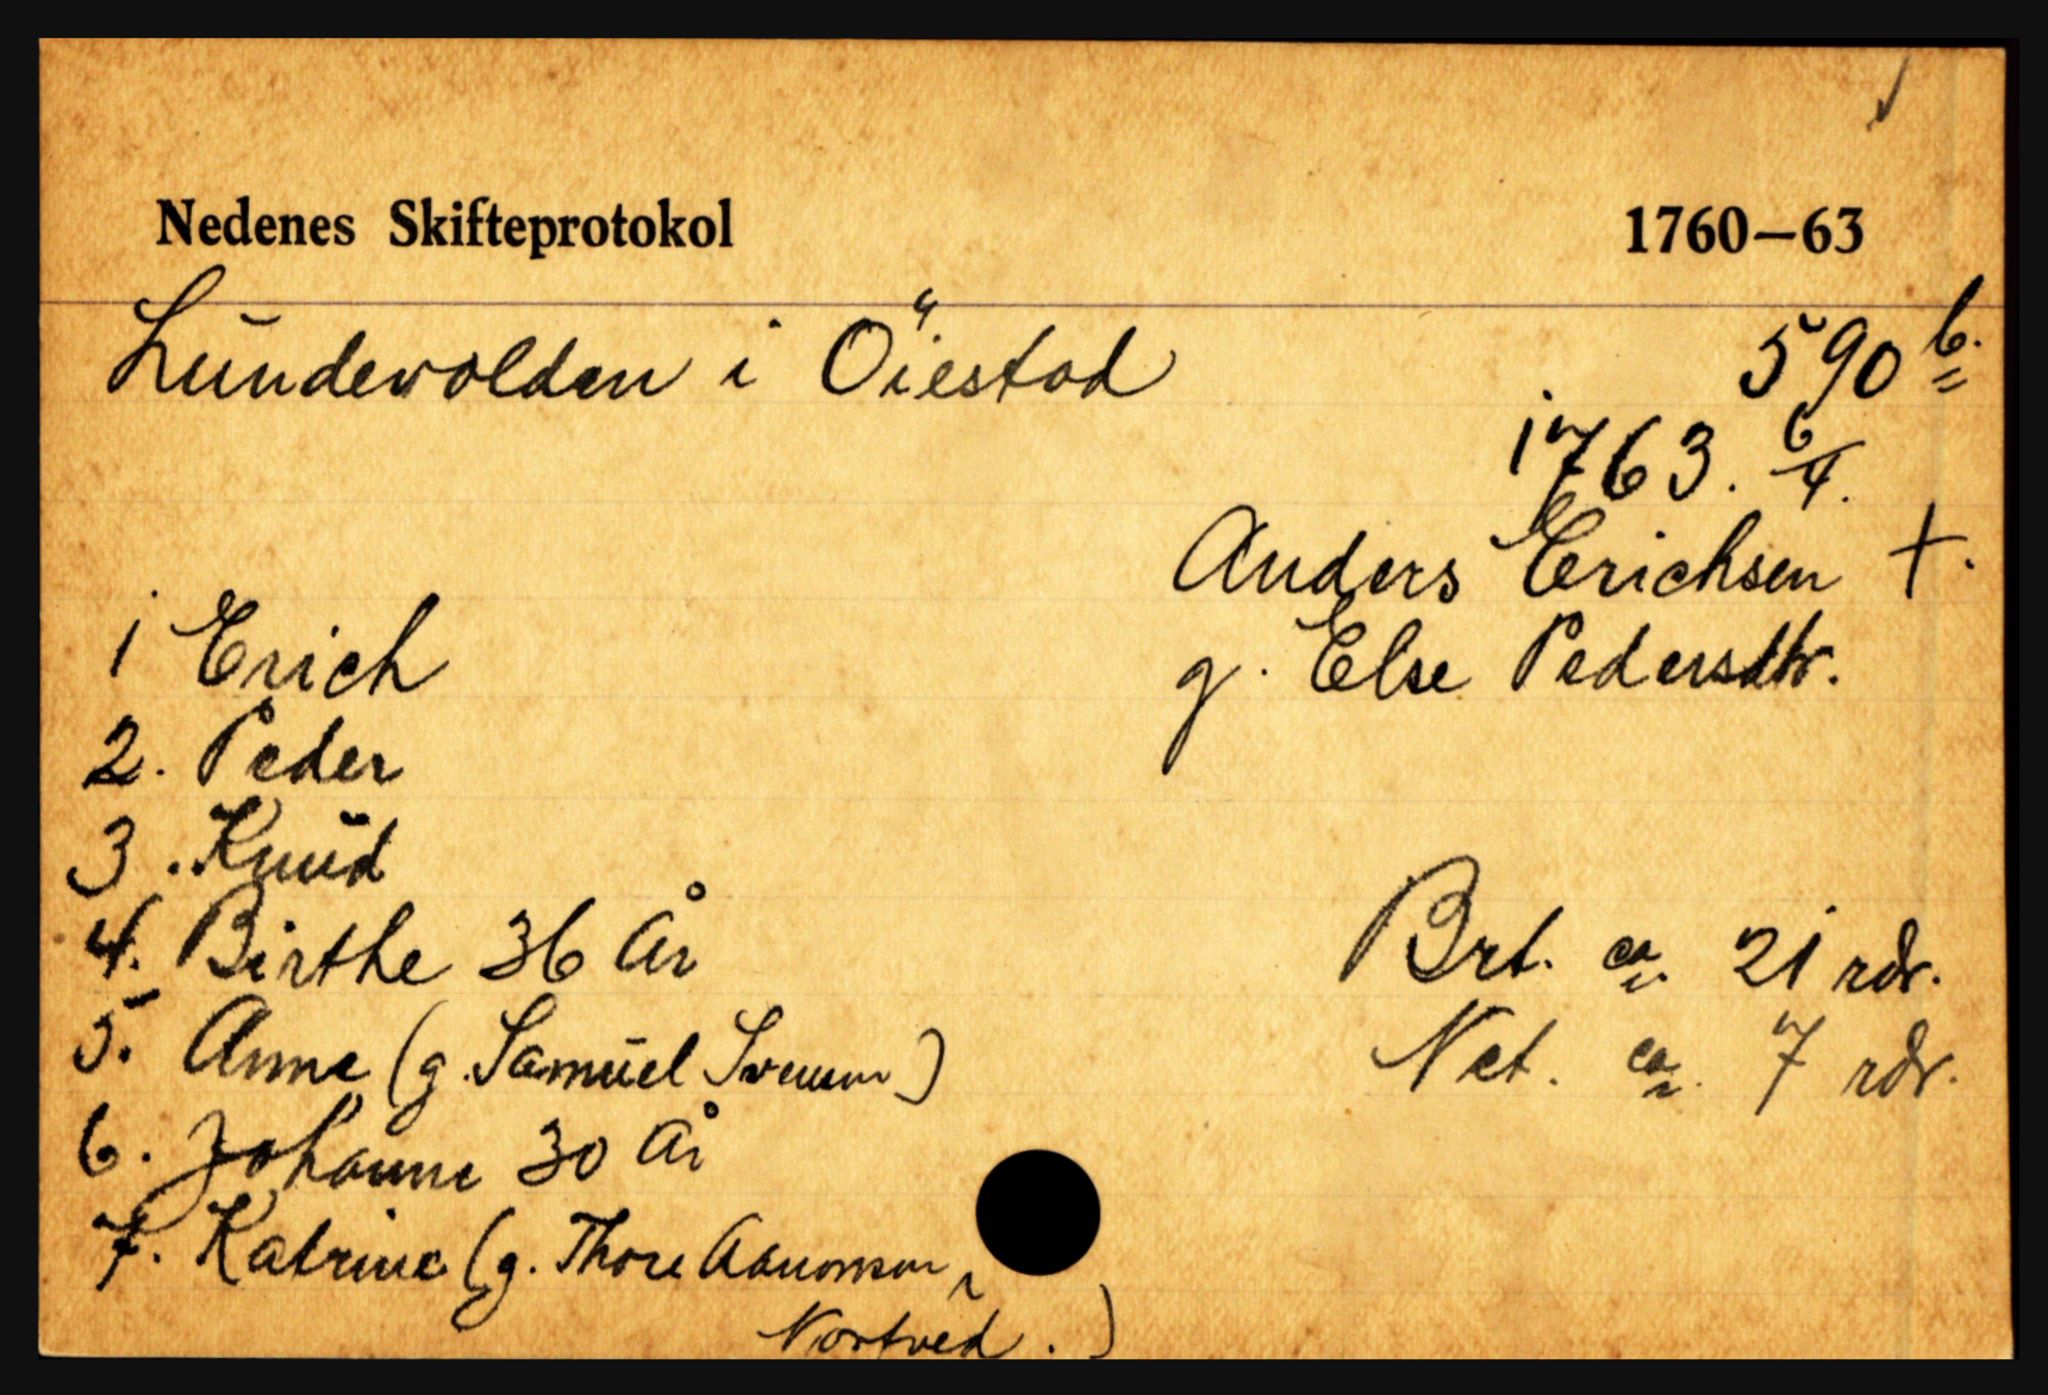 Nedenes Skifteprotokol 1760–63
Lundevolden i Öiestad 590 b.
1763. 6/4.
Anders Erichsen +.
1 Erich g. Else Pedersdtr.
2. Peder
3. Knud
4. Birthe 36 År Brt. ca. 21 rdr.
5. Anne (g. Samuel Svensen) Net. ca. 7 rdr.
6. Johanne 30 År
7. Katrine (g. Thore Aanonsen,
Nortved.)